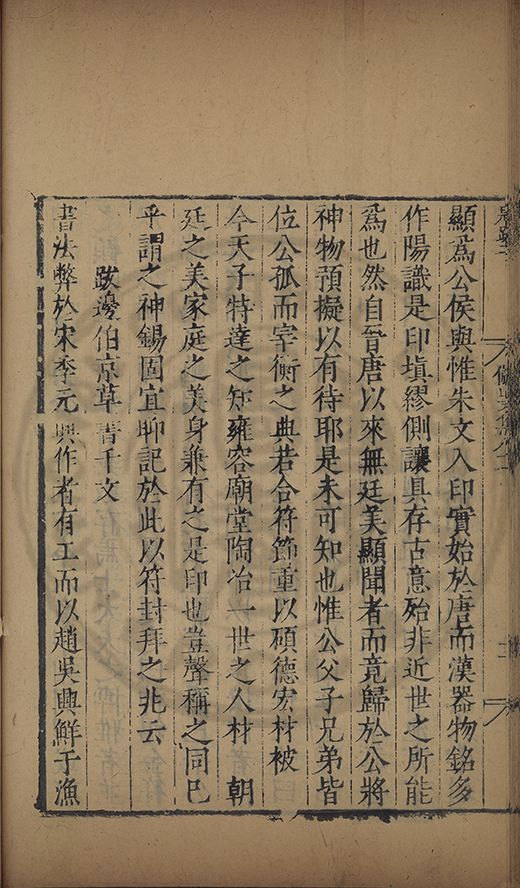 顯爲公侯與惟朱文入印實始於唐而漢器物銘多
作陽識是印塡繆側讓具存古意殆非近世之所能
爲也然自晉唐以來無廷美顯聞者而竟歸於公將
神物預擬以有待耶是未可知也惟公父子兄弟皆
位公孤而宰衡之典若合符節重以碩德宏材被
今天子特達之知雍容廟堂陶冶一世之人材 朝
廷之美家庭之美身兼有之是印也豈聲稱之同已
乎謂之神錫固宜聊記於此以符封拜之兆云
跋邊伯京草書千文
書法弊於宋季元興作者有工而以趙吳興鮮于漁